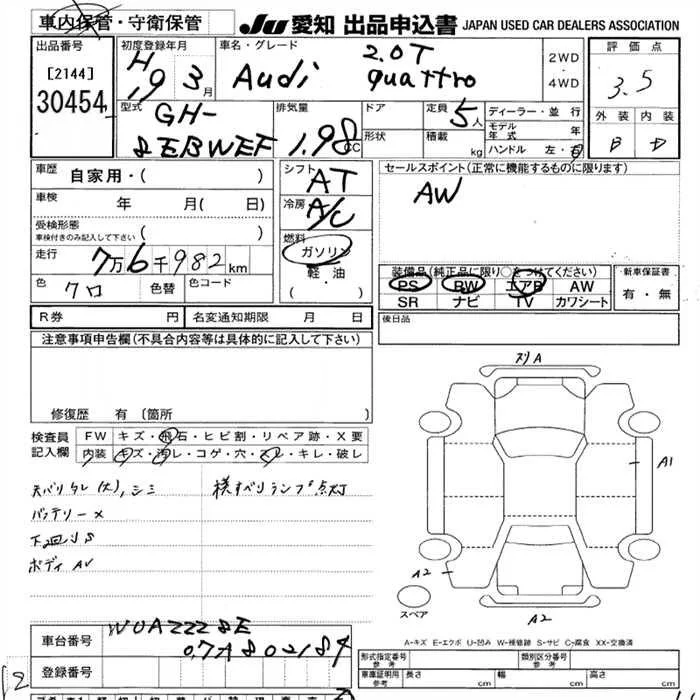 車内保管・守衛保管
JU 愛知 出品申込書 JAPAN USED CAR DEALERS ASSOCIATION
出品番号
[2144]
30454
初度登録年月
H19 3月
車名・グレード
Audi 2.0T quattro
2WD・4WD
評価点
3.5
外装 内装
B D
型式
GH-8EBWEF
排気量
1.98cc
ドア
形状
定員
5人
積載 kg
ディーラー・並行
モデル年式 年
ハンドル 左・右
車歴
自家用・( )
車検
年 月( 日)
受検形態
車検付きのみ記入して下さい
( )
走行
7万6千982km
色
クロ
色替
色コード
シフト
AT
冷房
A/C
燃料
ガソリン
軽・油
( ・ )
セールスポイント(正常に機能するものに限ります)
AW
装備品(純正品に限り○をつけてください)
PS PW エアB AW
SR ナビ TV カワシート
新車保証書
有・無
後日品
R券 円
名変通知期限 月 日
注意事項申告欄(不具合内容等は具体的に記入して下さい)
修復歴 有〔箇所
検査員記入欄
FW キズ・飛石・ヒビ割・リペア跡・X要
内装 キズ・汚レ・コゲ・穴・スレ・キレ・破レ
天バリタレ(大),シミ
横すべりランプ点灯
バッテリー×
下回りS
ボディAU
スリA
A1
A2
A2
スペア
A-キズ E-エクボ U-凹み W-補修跡 S-サビ C-腐食 XX-交換済
車台番号
WUAZZZ8E
07A802184
登録番号
形式指定番号
参考
類別区分番号
参考
車庫証明用
参考
長さ cm
幅 cm
高さ cm